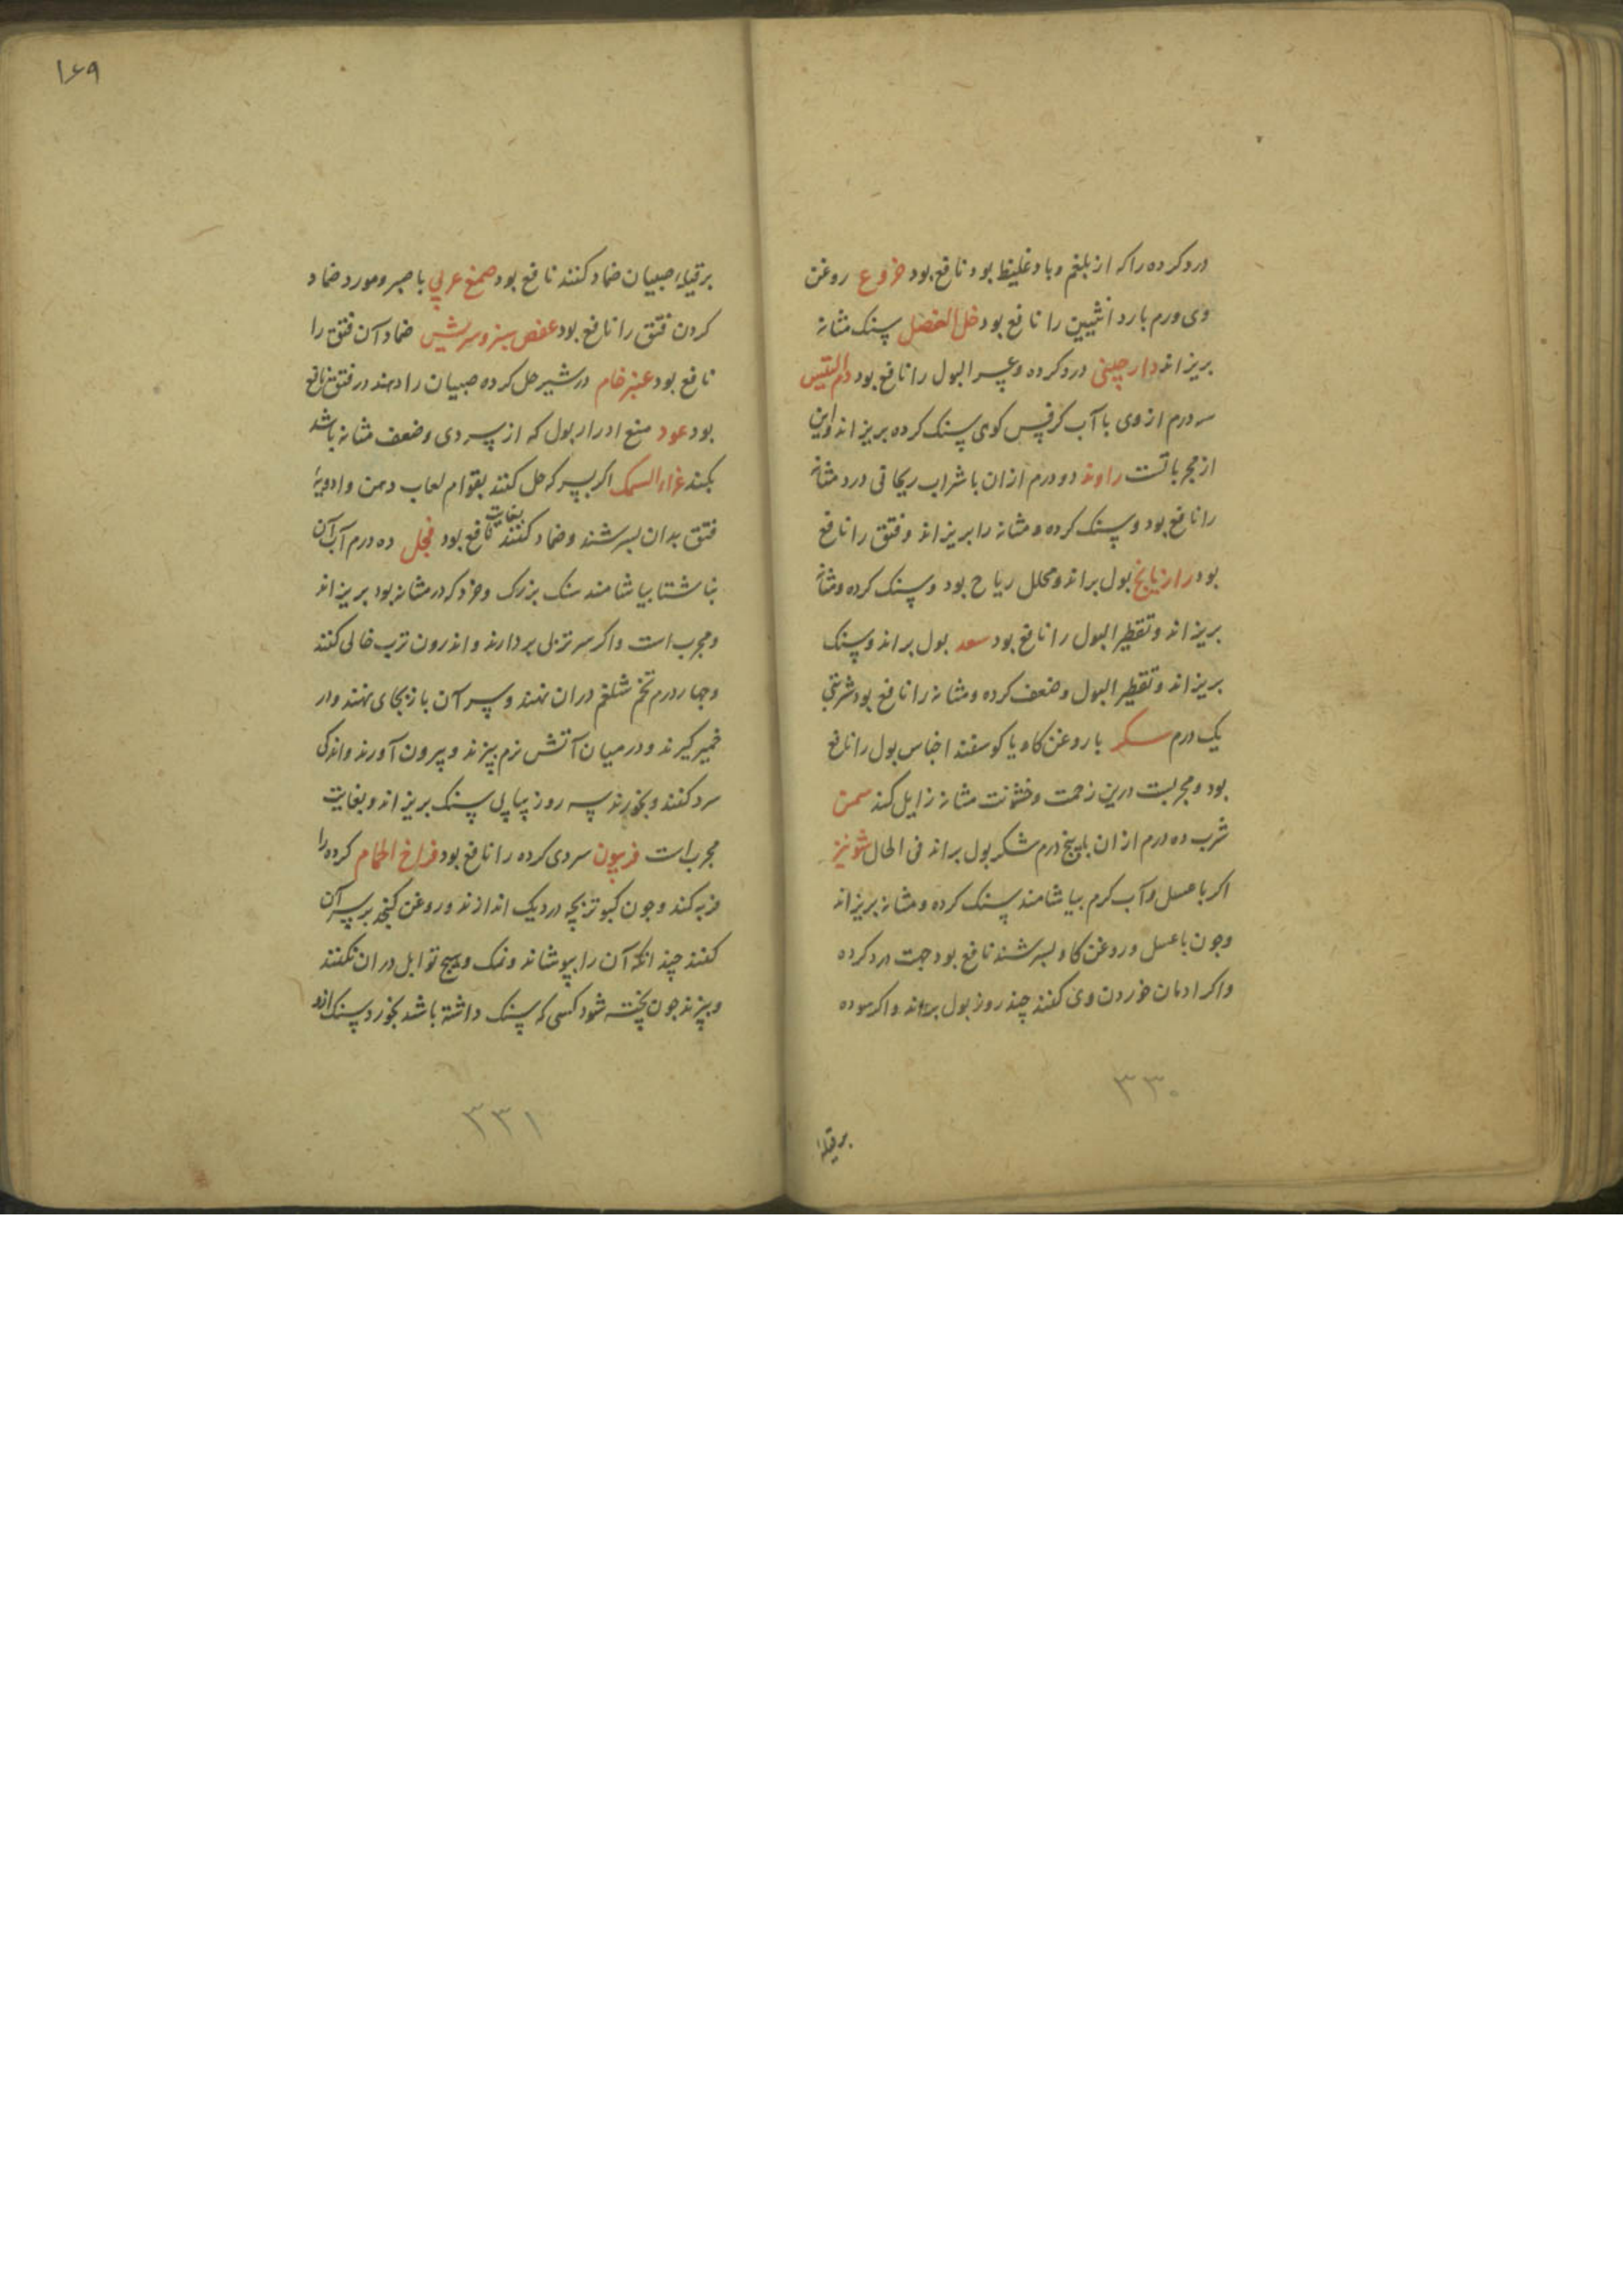 درد کرده را که از بلغم و باد غلیظ بود نافع بود خروع روغن
وی ورم بارد انثیین را نافع بود خل العنصل سنک مثانه
بریزاند دارچینی درد کرده و عسر البول را نافع بود دم التیس
سه درم از وی با آب کرفس کوهی سنک کرده بریزاند و این
از مجرباتست راوند دو درم ازان با شراب ریحانی درد مثانه
را نافع بود و سنک کرده و مثانه را بریزاند و فتق را نافع
بود رازیانج بول براند و محلل ریاح بود و سنک کرده و مثانه
بریزاند و تقطیر البول را نافع بود سعد بول براند و سنک
بریزاند و تقطیر البول و ضعف کرده و مثانه را نافع بود شربتی
یک درم سکر با روغن کاو یا کوسفند احتباس بول را نافع
بود و مجربست درین زحمت و خشونت مثانه زایل کند سمن
شرب ده درم ازان با پنج درم شکر بول براند فی الحال شونیز
اکر با عسل و آب کرم بیاشامند سنک کرده و مثانه بریزاند
وجون با عسل و روغن کاو بسرشند نافع بود جهت درد کرده
واکر ادمان خوردن وی کنند چند روز بول براند واکر سوده
۳۳۰
برقیله
۱۶۹
برقیله صبیان ضماد کنند نافع بود صمغ عربی با صبر ومورد ضماد
کردن فتق را نافع بود عفص سبز و سریش ضماد آن فتق را
نافع بود عنبر خام در شیر حل کرده صبیان را دهند در فتق نافع
بود عود منع ادرار بول که از سردی وضعف مثانه باشد
بکند غراء السمک اکر بسرکه حل کنند بقوام لعاب دهن وادویهٔ
فتق بدان بسرشند وضماد کنند بغایت نافع بود فجل ده درم آب آن
بناشتا بیاشامند سنک بزرک وخرد که در مثانه بود بریزاند
ومجرب است واکر سر تربی بردارند واندرون ترب خالی کنند
وجهار درم تخم شلغم دران نهند وسر آن باز بجای نهند ودر
خمیر کیرند ودر میان آتش نرم بپزند وبیرون آورند واندکی
سرد کنند وبخورند سه روز پیاپی سنک بریزاند وبغایت
مجرب است فربیون سردی کرده را نافع بود فراخ الحمام کرده را
فربه کند وجون کبوتر بچه در دیک اندازند وروغن کنجد بر سر آن
کنند چندانکه آن را بپوشاند ونمک وهیج توابل دران نکنند
وبپزند جون پخته شود کسی که سنک داشته باشد بخورد سنک
۳۳۱